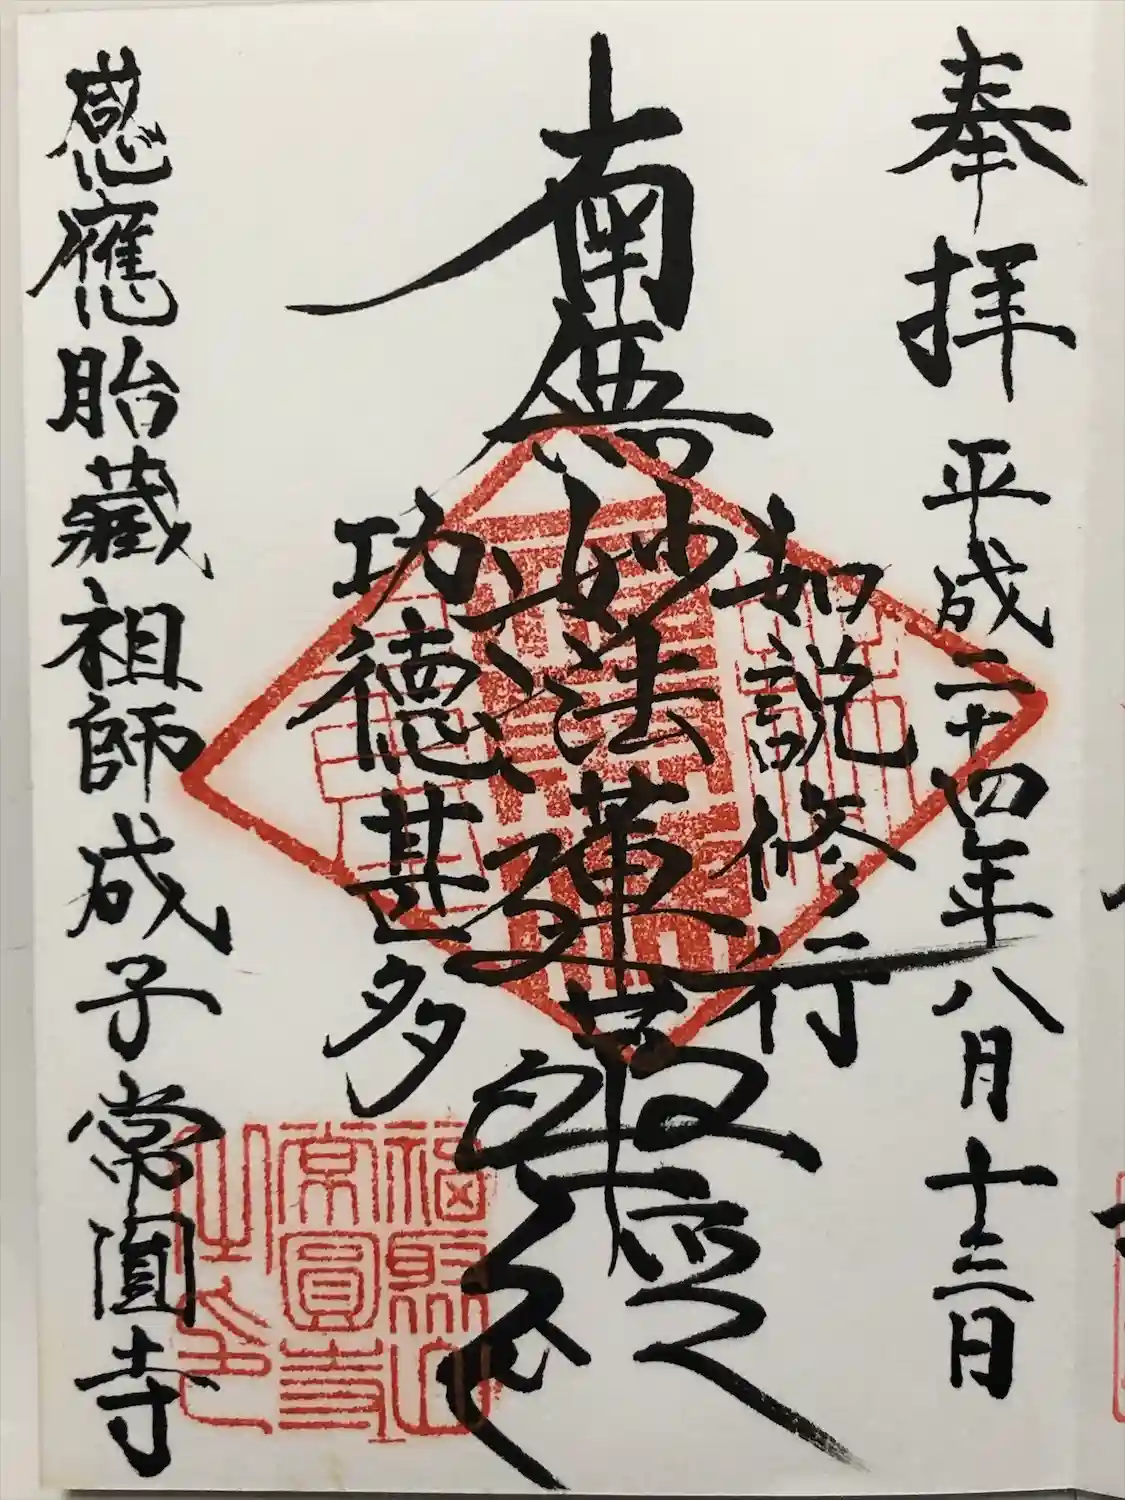 奉拝 平成二十四年八月十三日
如説修行
南無妙法蓮華経
功徳甚多
感應胎藏祖師成子常圓寺
福聚山
常圓寺
之印